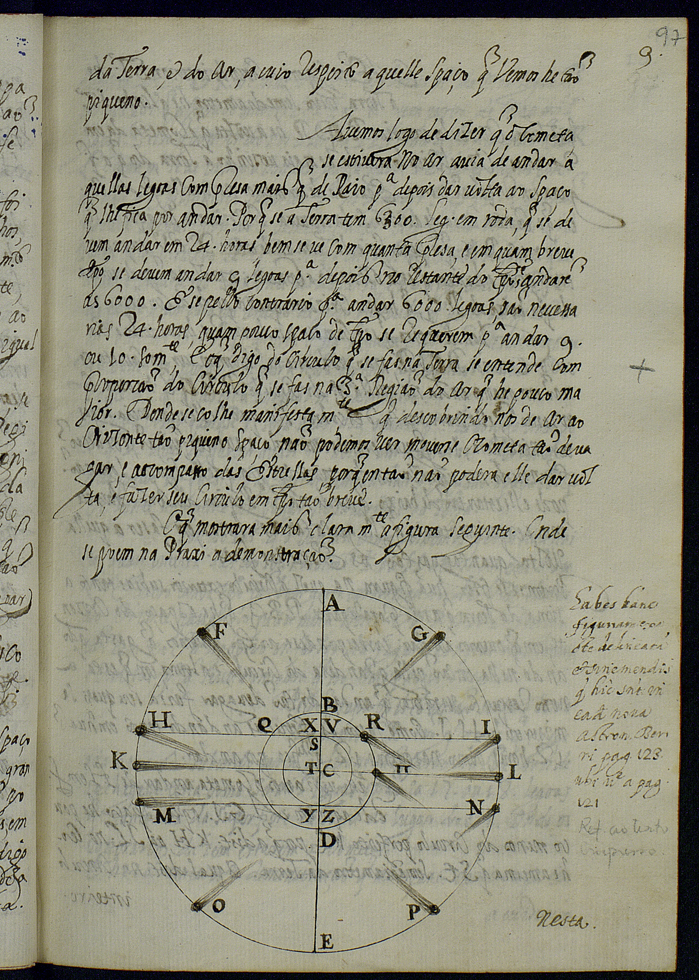 97
9.
da Terra, e do Ar, a cuio respeito aquelle spaço q̃ vemos he tão
piqueno.
Avemos logo de dizer q̃ o Cometa
se estivera no Ar avia de andar a
quellas legoas com presa mais q̃ de Raio pª depois dar volta ao spaço
q̃ lhe fica por andar. Porq̃ se a Terra tem 6300. leg. em roda, q̃ se de
vem andar em 24. horas bem se ve com quanta presa, e em quam breve
tpõ se devem andar 9 legoas pª depois no restante do tpõ andarẽ
as 6000. E se pello contrario pª andar 6000 legoas são necessa
rias 24. horas, quam pouco spaço de tpõ se requerem pª andar 9.
ou 10. somte E o q̃ digo do Circulo q̃ se fas na Terra se entende com
proporção do Circulo q̃ se fas na 3ª Região do Ar q̃ he pouco ma
jor. Donde se colhe manifestamte q̃ descobrindo nos de Ar ao
Orizonte tão piqueno spaço não podemos ver moverse o Cometa tão deva
gar, e ao compasso das Estrellas porq̃ então não poderá elle dar vol
ta, e fazer seu Circulo em tpõ tão breve.
O q̃ mostrara mais claramte a figura seguinte. Onde
se poem na Praxi a demonstração.
A
F
G
B
H
Q
X V
R
I
S
K
T C
L
M
Y Z
N
D
O
P
E
Habes hanc
figuram
q hic sunt in
ea nova
Astron.
pag. 123
pag
121
Ref. ao texto
Nesta.